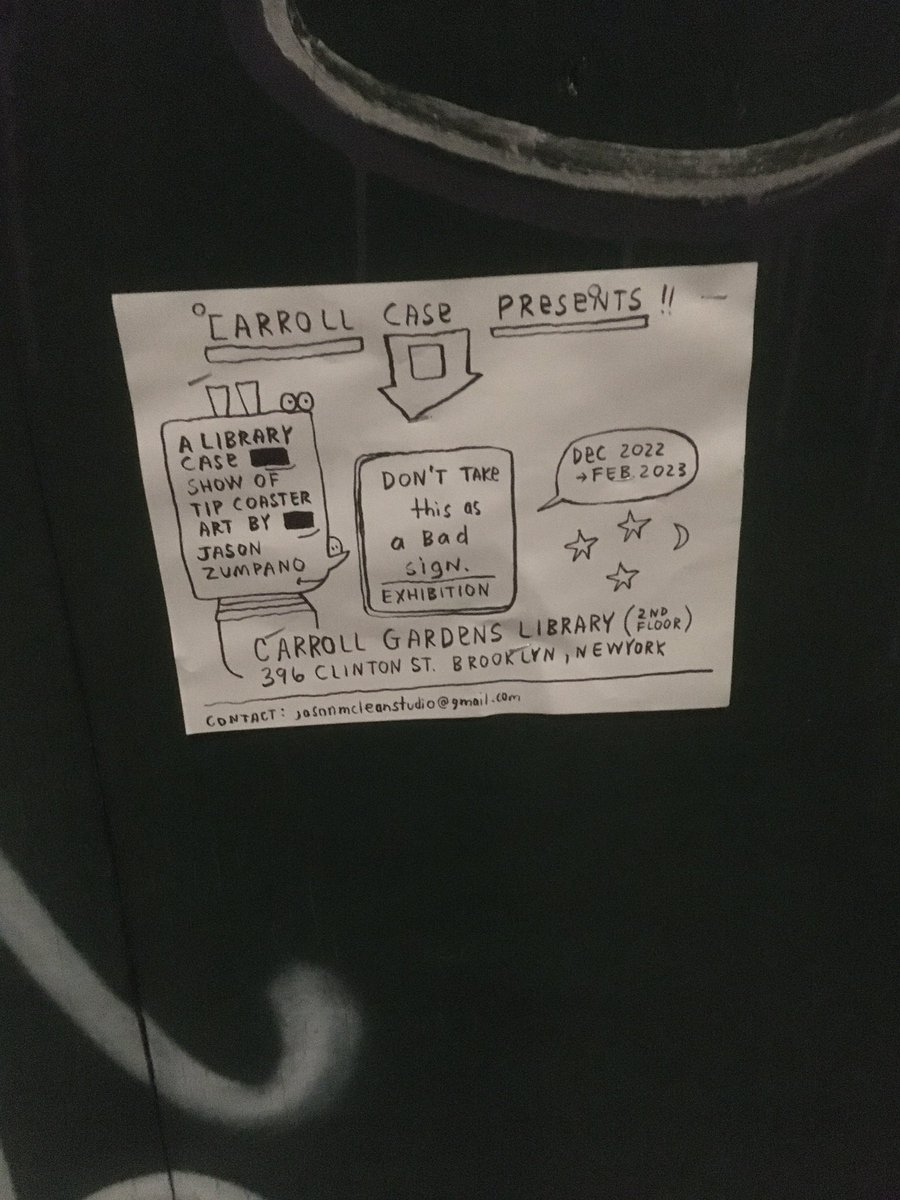 CARROLL CASE PRESENTS !!
A LIBRARY
CASE
SHOW OF
TIP COASTER
ART BY
JASON
ZUMPANO
DON'T TAKE
this as
a Bad
sign.
EXHIBITION
Dec 2022
→ FEB. 2023
CARROLL GARDENS LIBRARY (2ND FLOOR)
396 CLINTON ST. BROOKLYN, NEWYORK
CONTACT: jasonmcleanstudio@gmail.com